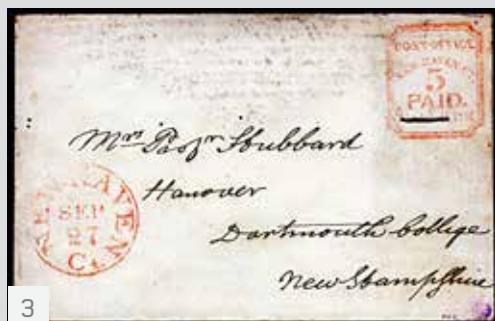 POST OFFICE
NEW HAVEN CT.
5
PAID.
Mrs Hubbard
Hanover
Dartmouth College
New Hampshire
NEW HAVEN
SEP
27
Ct
3